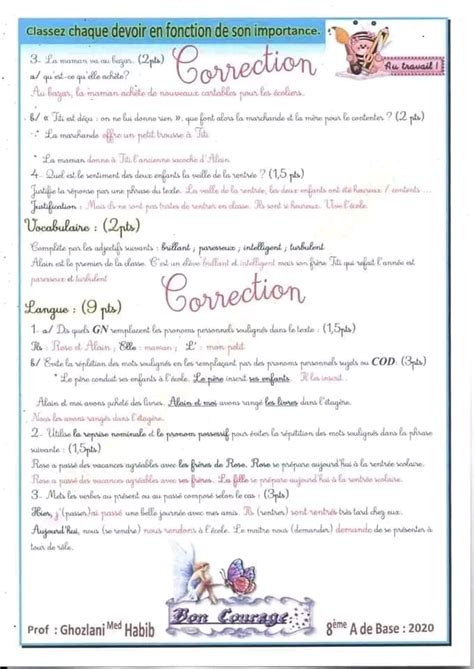 Classez chaque devoir en fonction de son importance.
Au travail !
Correction
3- La maman va au bazar. (2pts)
a/ qu'est-ce qu'elle achète?
Au bazar, la maman achète de nouveaux cartables pour les écoliers.
b/ « Titi est déçu : on ne lui donne rien », que font alors la marchande et la mère pour le contenter ? (2 pts)
* La marchande offre un petit trousse à Titi
* La maman donne à Titi l'ancienne sacoche d'Alain
4- Quel est le sentiment des deux enfants la veille de la rentrée ? (1,5 pts)
Justifie ta réponse par une phrase du texte. La veille de la rentrée, les deux enfants ont été heureux / contents ....
Justification : Mais ils ne sont pas tristes de rentrer en classe. Ils sont si heureux. Vive l'école.
Vocabulaire : (2pts)
Complète par les adjectifs suivants : brillant ; paresseux ; intelligent ; turbulent
Alain est le premier de la classe. C'est un élève brillant et intelligent mais son frère Titi qui refait l'année est
paresseux et turbulent
Correction
Langue : (9 pts)
1- a/ Dis quels GN remplacent les pronoms personnels soulignés dans le texte : (1,5pts)
Ils : Rose et Alain ; Elle : maman ; L' : mon petit
b/ Evite la répétition des mots soulignés en les remplaçant par des pronoms personnels sujets ou COD: (3pts)
* Le père conduit ses enfants à l'école. Le père inscrit ses enfants. Il les inscrit .
Alain et moi avons acheté des livres. Alain et moi avons rangé les livres dans l'étagère.
Nous les avons rangés dans l'étagère.
2- Utilise la reprise nominale et le pronom possessif pour éviter la répétition des mots soulignés dans la phrase
suivante : (1,5pts)
Rose a passé des vacances agréables avec les frères de Rose. Rose se prépare aujourd'hui à la rentrée scolaire.
Rose a passé des vacances agréables avec ses frères. La fille se prépare aujourd'hui à la rentrée scolaire.
3- Mets les verbes au présent ou au passé composé selon le cas : (3pts)
Hier, j'(passer)ai passé une belle journée avec mes amis. Ils (rentrer) sont rentrés très tard chez eux.
Aujourd'hui, nous (se rendre) nous rendons à l'école. Le maître nous (demander) demande de se présenter à
tour de rôle.
Bon Courage
Prof : Ghozlani Med Habib
8ème A de Base : 2020